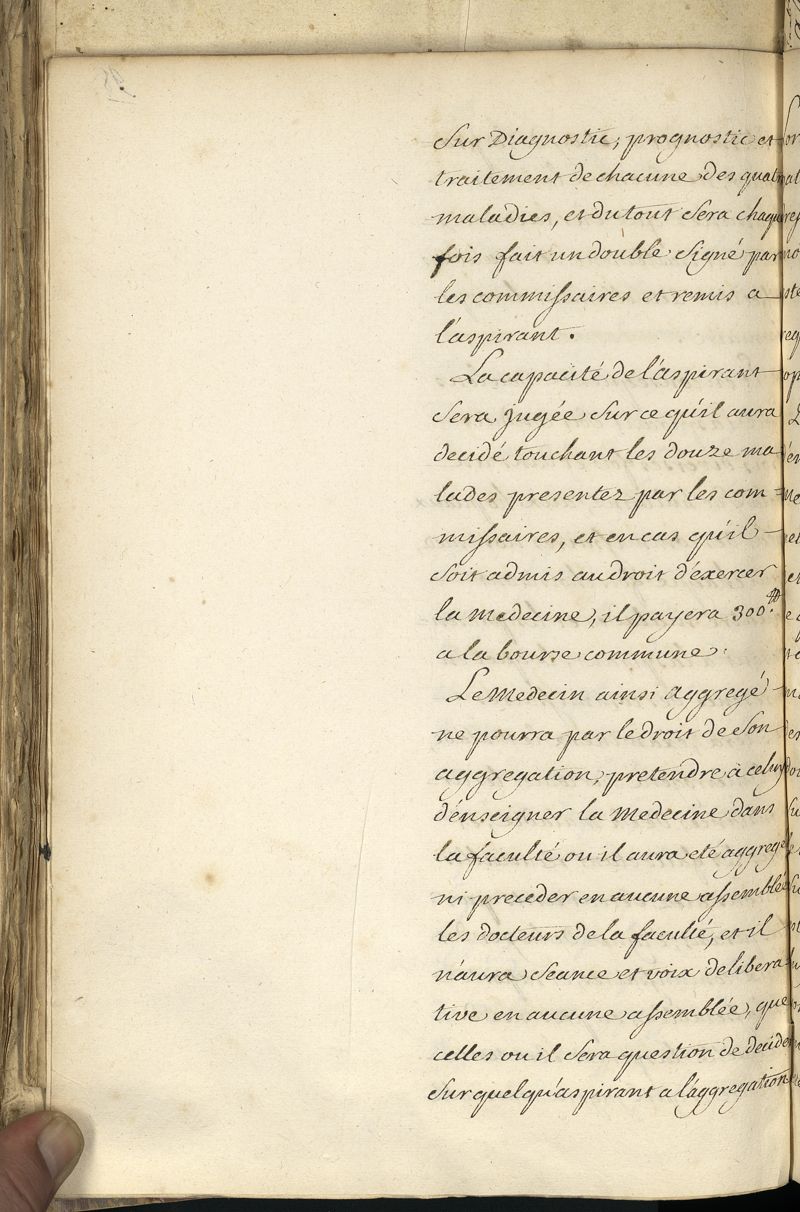 Sur Diagnostic, prognostic et
traitement de chacune des quatre
maladies, et du tout sera chaque
fois fait un double signé par
les commissaires et remis a
l'aspirant.
La capacité de l'aspirant
sera jugée sur ce qu'il aura
decidé touchant les douze ma
lades presentez par les com =
missaires, et en cas qu'il
soit admis au droit d'exercer
la medecine, il payera 300.₶
a la bourse commune.
Le Medecin ainsi aggregé
ne pourra par le droit de son
aggregation, pretendre à celuy
d'énseigner la Medecine dans
la faculté ou il aura eté aggregé
ni preceder en aucune assemblée
les docteurs de la faculté, et il
n'aura séance et voix delibera
tive en aucune assemblée, que
celles ou il sera question de decider
sur quelqu'aspirant a l'aggregation